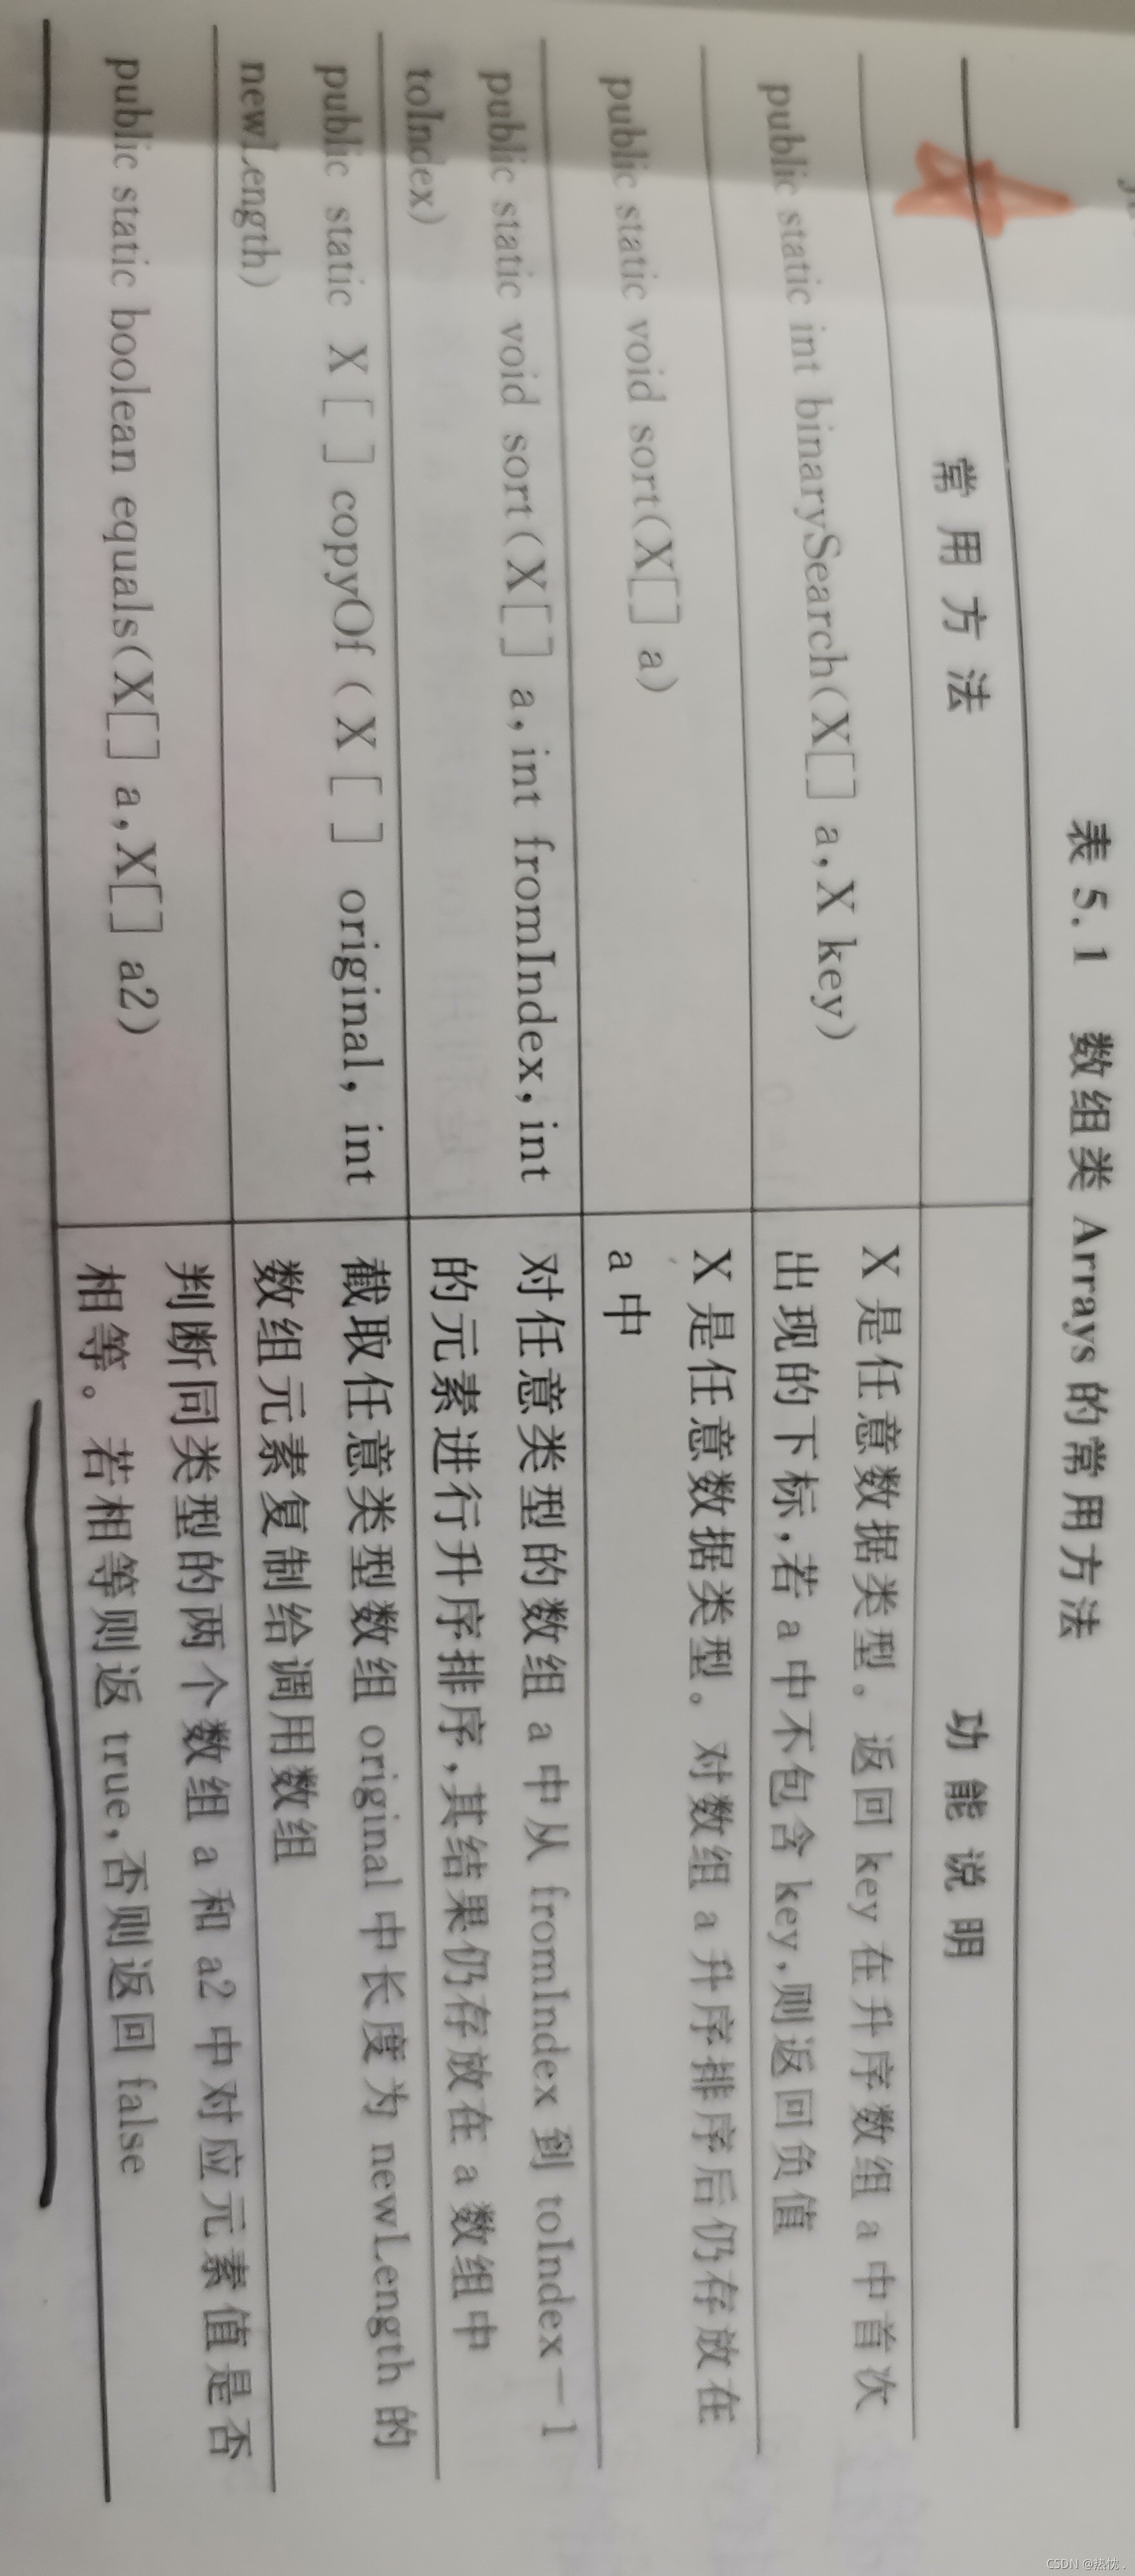 表 5.1 数组类 Arrays 的常用方法
常 用 方 法
功 能 说 明
public static int binarySearch(X[] a,X key)
X 是任意数据类型。返回 key 在升序数组 a 中首次
出现的下标,若 a 中不包含 key,则返回负值
public static void sort(X[] a)
X 是任意数据类型。对数组 a 升序排序后仍存放在
a 中
public static void sort(X[] a,int fromIndex,int
toIndex)
对任意类型的数组 a 中从 fromIndex 到 toIndex-1
的元素进行升序排序,其结果仍存放在 a 数组中
public static X[]copyOf(X[] original, int
newLength)
截取任意类型数组 original 中长度为 newLength 的
数组元素复制给调用数组
public static boolean equals(X[] a,X[] a2)
判断同类型的两个数组 a 和 a2 中对应元素值是否
相等。若相等则返 true,否则返回 false
CSDN @热忱.